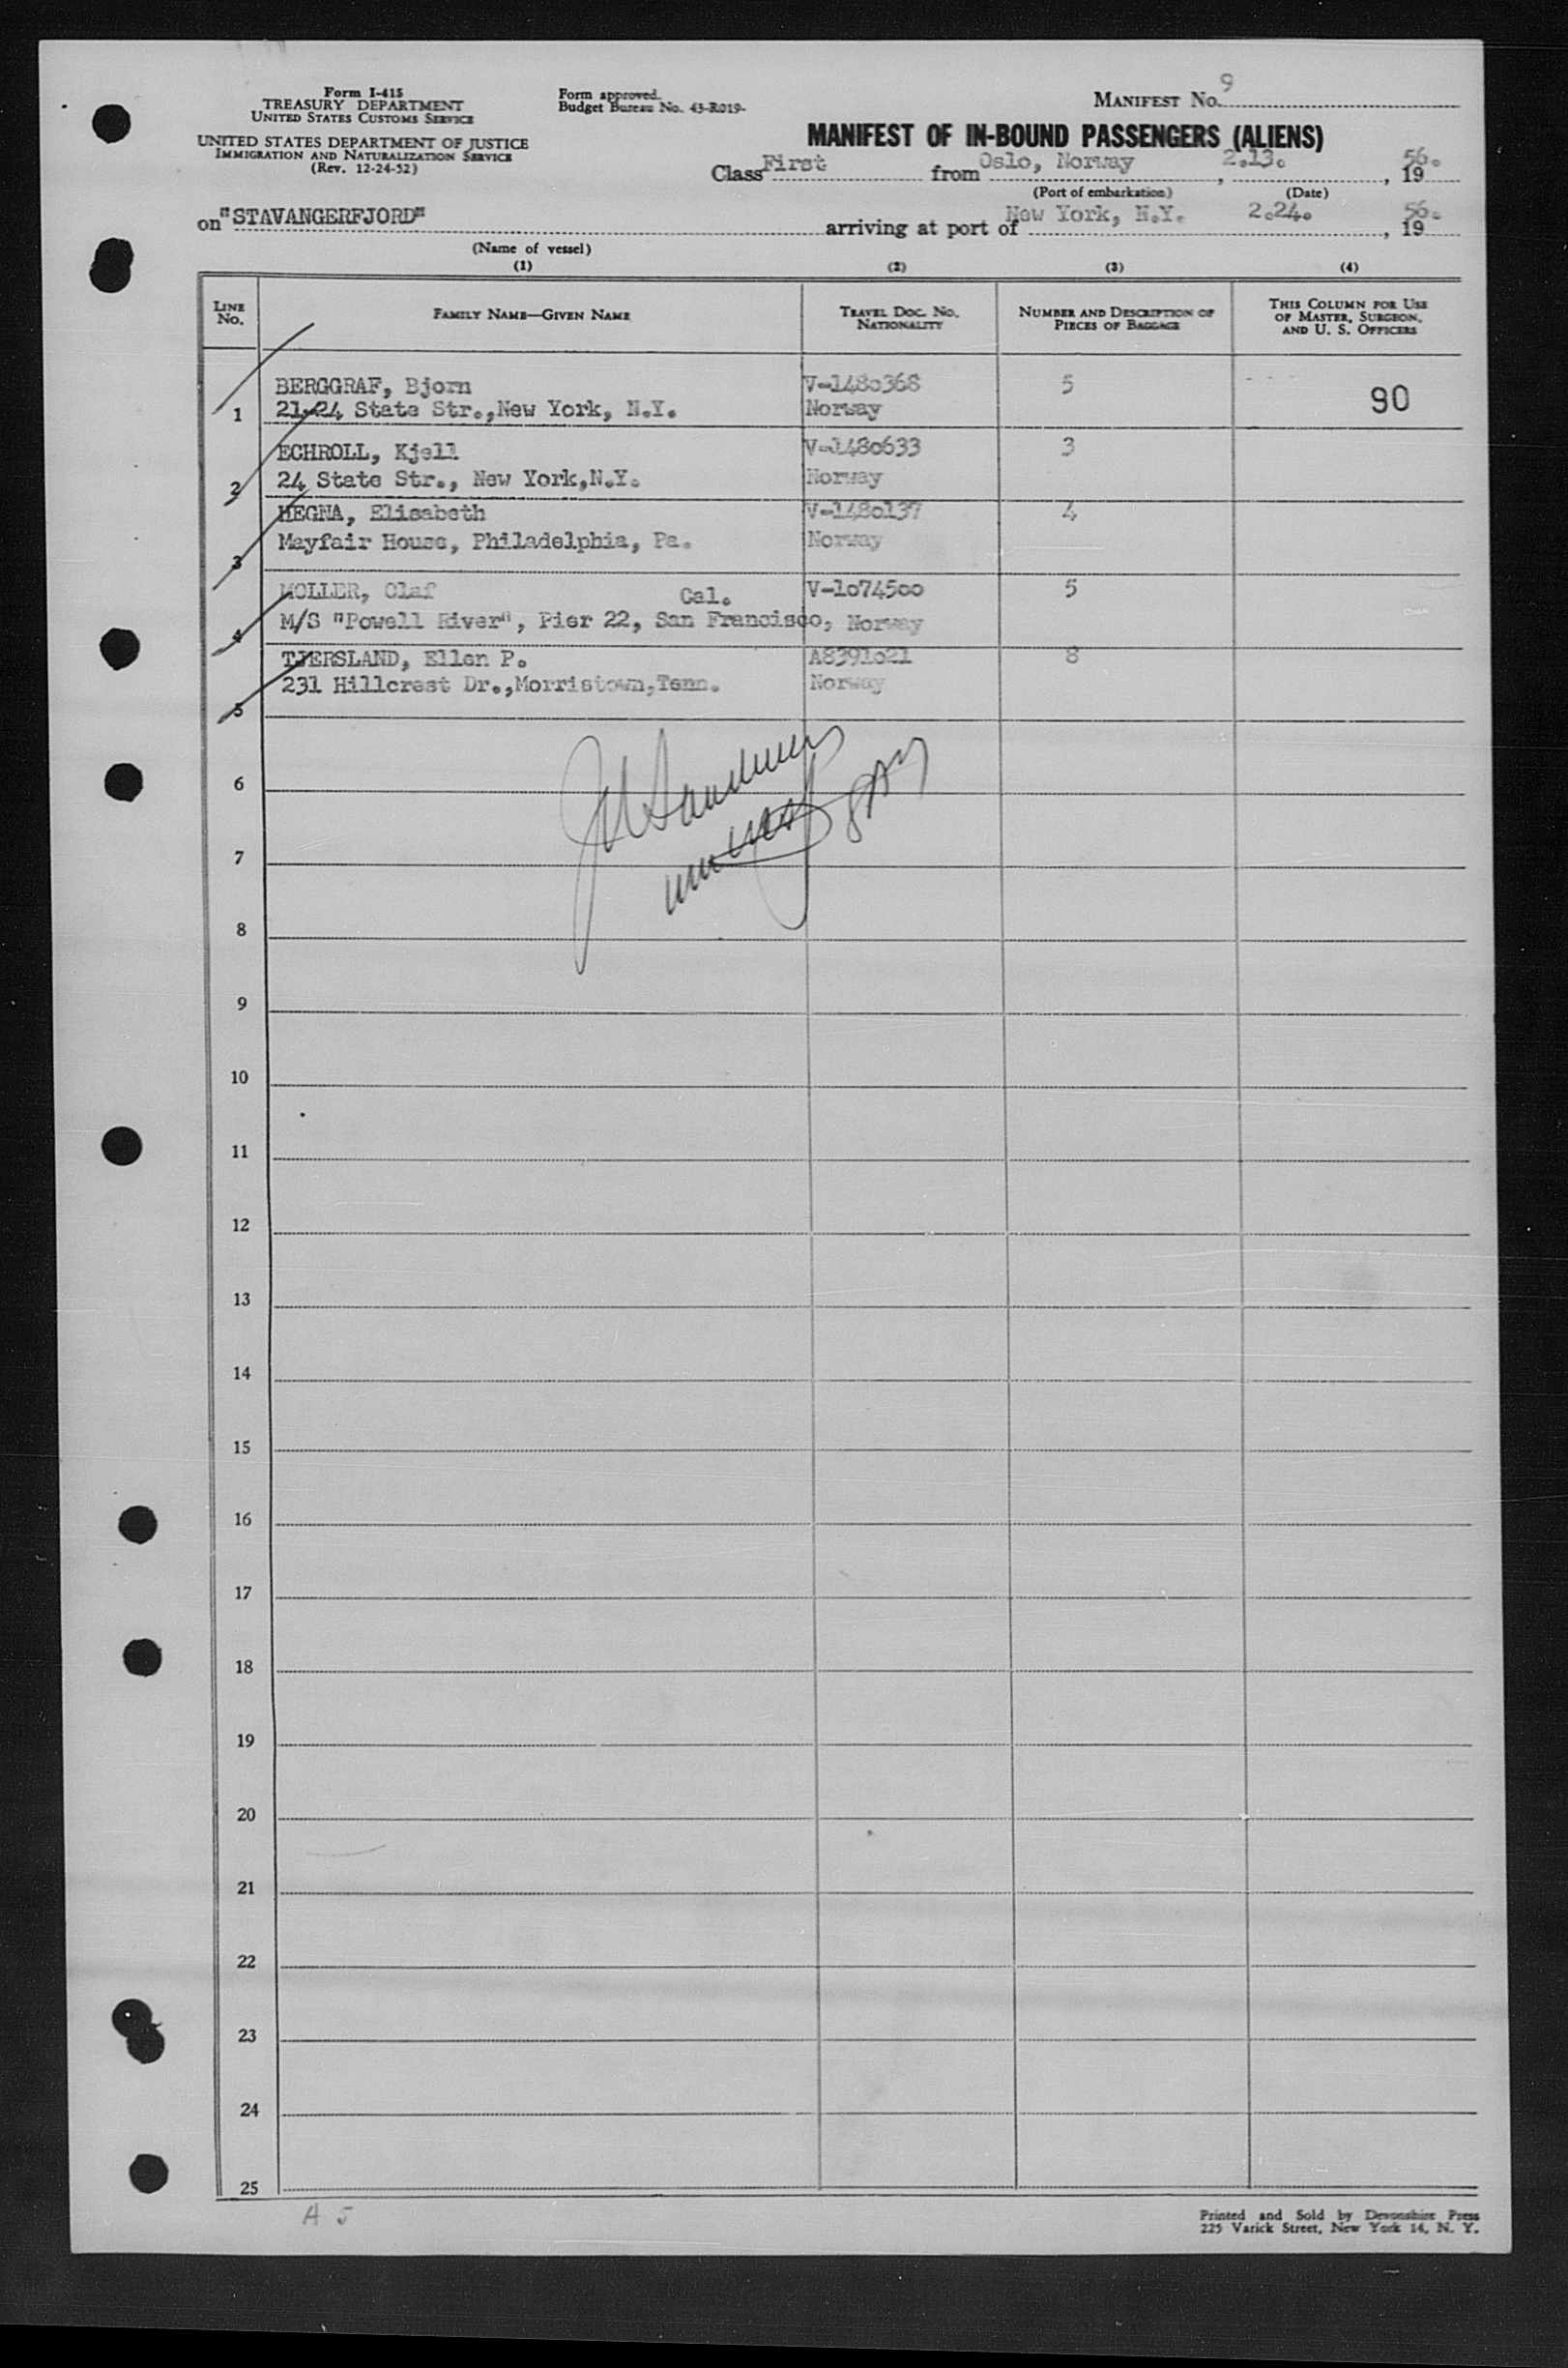 Form I-415
TREASURY DEPARTMENT
UNITED STATES CUSTOMS SERVICE
UNITED STATES DEPARTMENT OF JUSTICE
IMMIGRATION AND NATURALIZATION SERVICE
(Rev. 12-24-52)
Form approved.
Budget Bureau No. 43-R019-
MANIFEST No. 9
MANIFEST OF IN-BOUND PASSENGERS (ALIENS)
Class First from Oslo, Norway, 2.13., 1956.
(Port of embarkation) (Date)
on "STAVANGERFJORD" arriving at port of New York, N.Y. 2.24., 1956.
(Name of vessel)
(1) (2) (3) (4)
LINE No. FAMILY NAME—GIVEN NAME TRAVEL DOC. No. NATIONALITY NUMBER AND DESCRIPTION OF PIECES OF BAGGAGE THIS COLUMN FOR USE OF MASTER, SURGEON, AND U. S. OFFICERS
BERGGRAF, Bjorn V-1480368 5 90
1 21-24 State Str.,New York, N.Y. Norway
ECHROLL, Kjell V-1480633 3
2 24 State Str., New York,N.Y. Norway
HEGNA, Elisabeth V-1480137 4
3 Mayfair House, Philadelphia, Pa. Norway
MOLLER, Olaf Cal. V-1074500 5
4 M/S "Powell River", Pier 22, San Francisco, Norway
TJERSLAND, Ellen P. A8391021 8
5 231 Hillcrest Dr.,Morristown,Tenn. Norway
6
7
8
9
10
11
12
13
14
15
16
17
18
19
20
21
22
23
24
25
A 5
Printed and Sold by Devonshire Press
225 Varick Street, New York 14, N. Y.